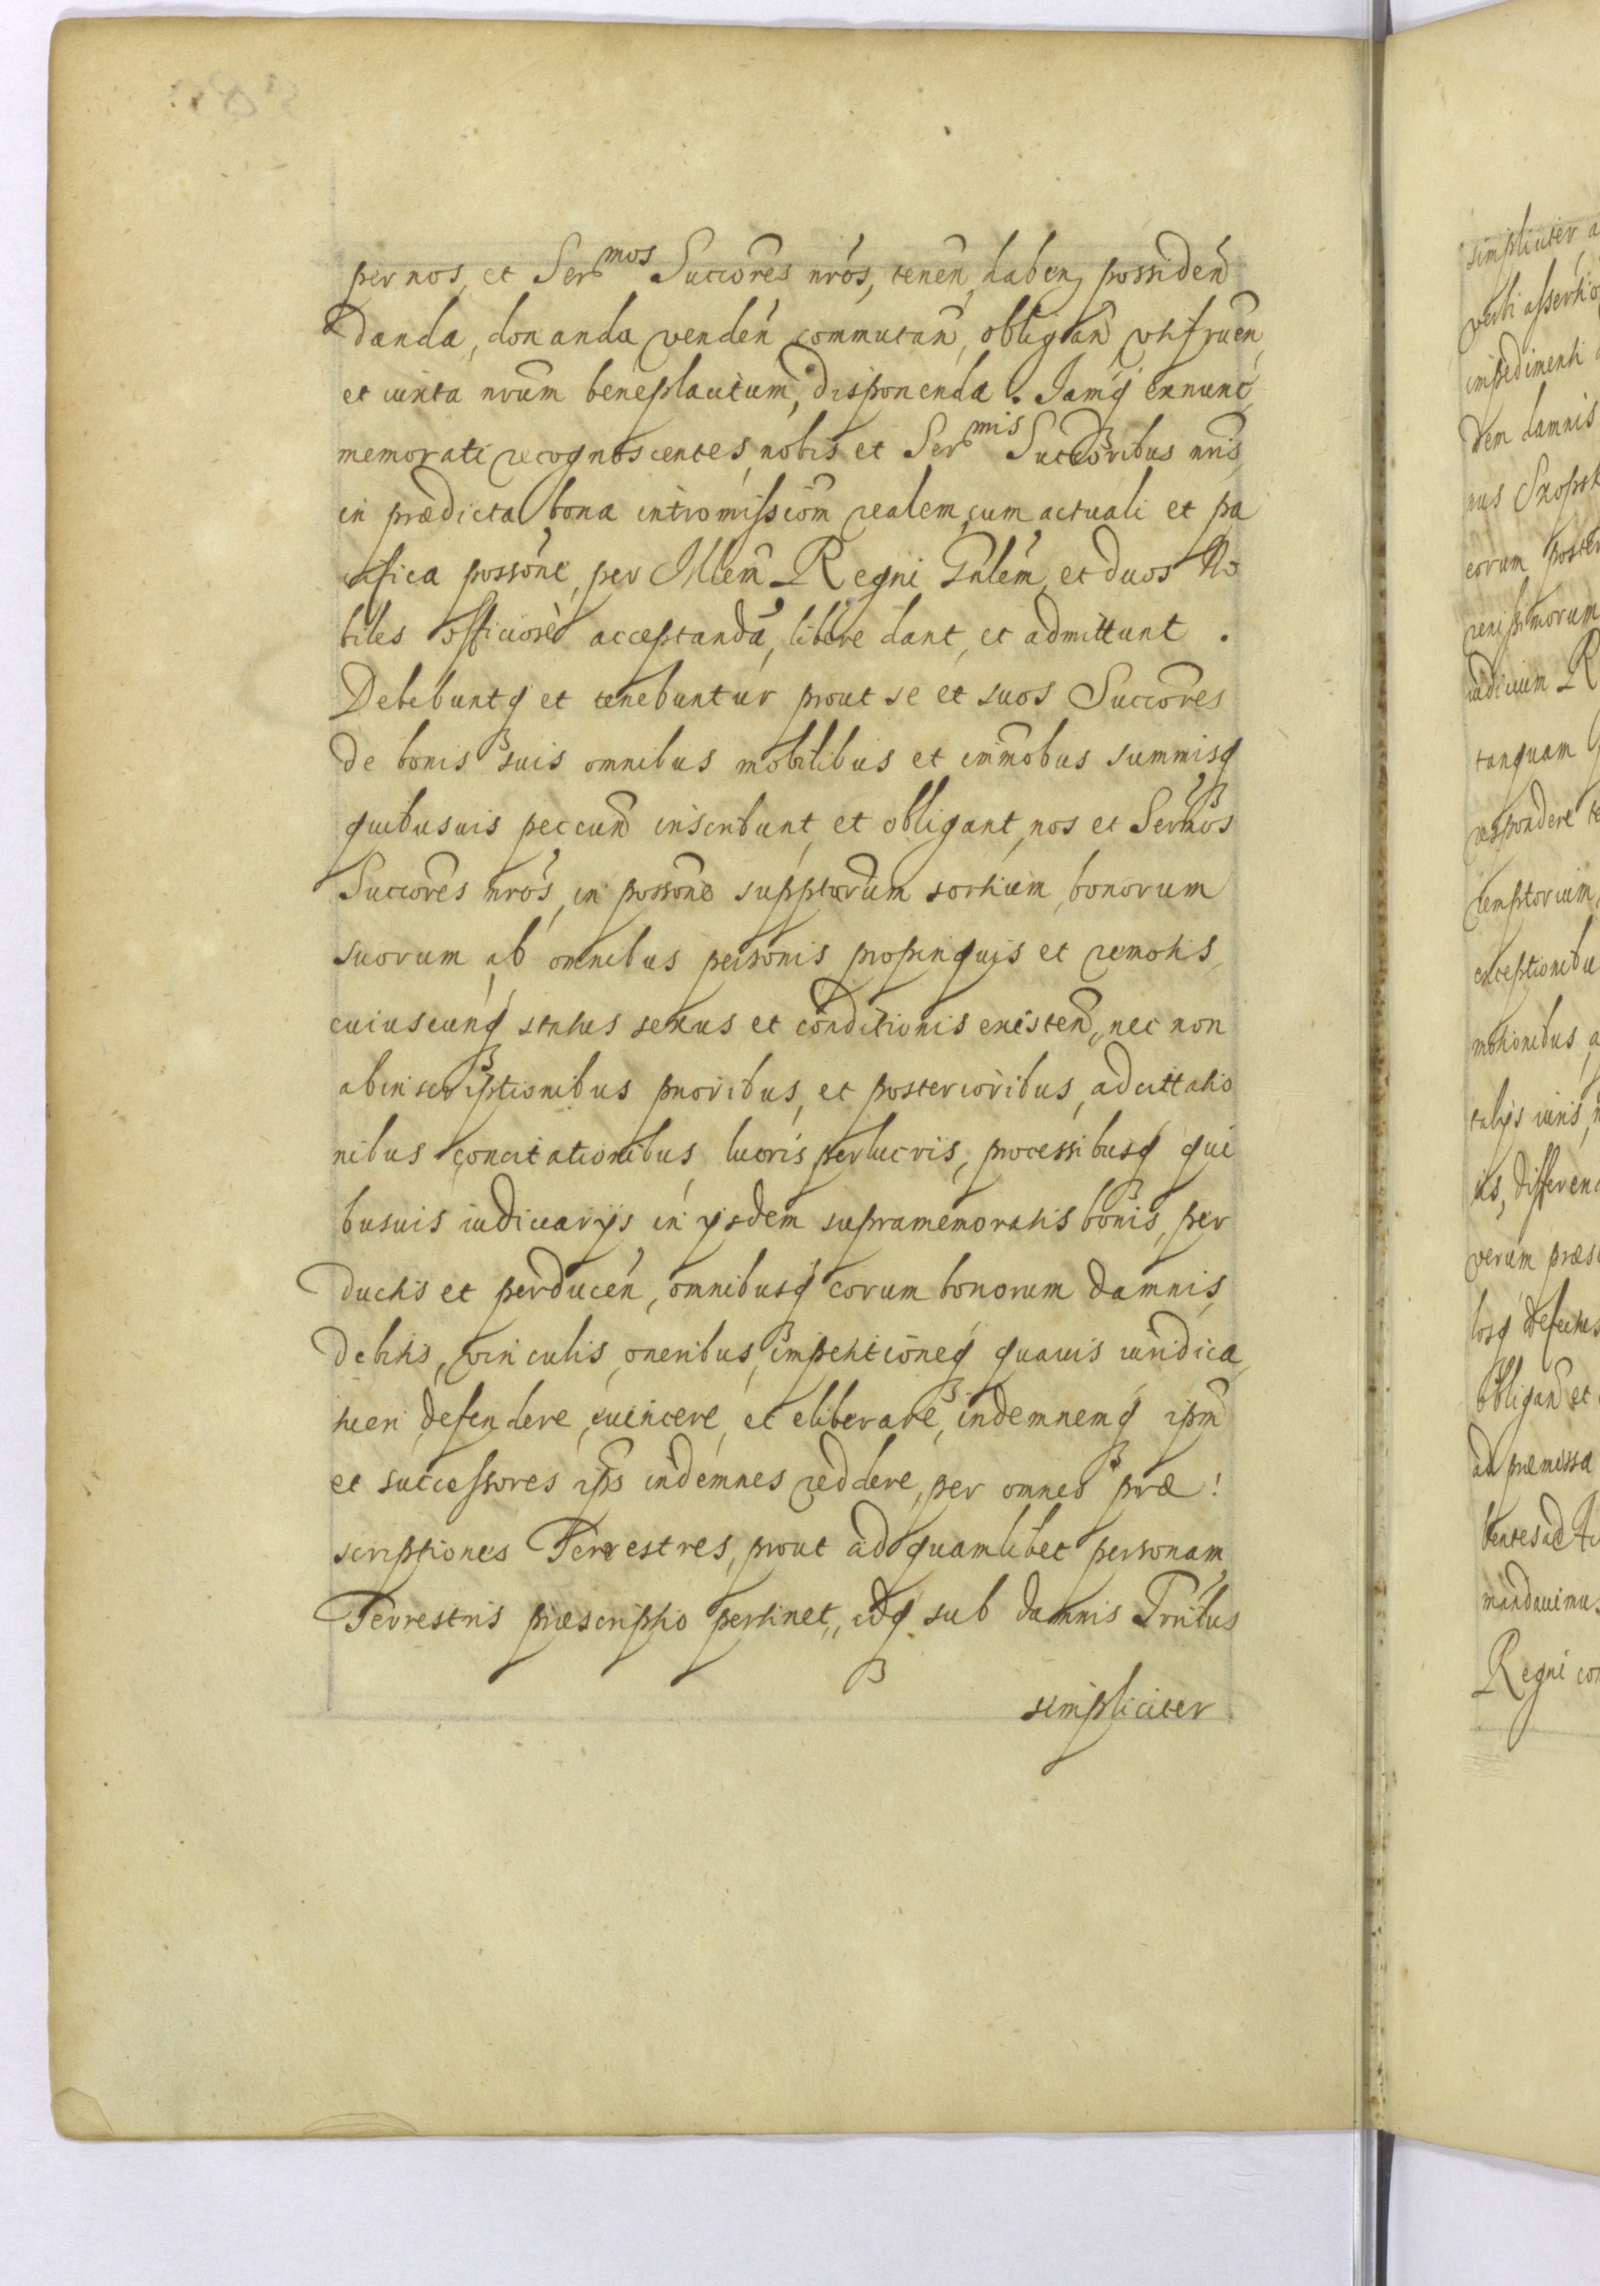 per nos, et Ser^mos Succores nros, tenen, haben, possiden
danda, donanda venden commutan, obligan utifruen,
et iuxta nrum beneplacitum, disponenda. Iamq exnunc,
memorati recognoscentes, nobis et Ser^mis Succoribus nris,
in prædicta bona intromissiom realem, cum actuali et pa
cifica possone, per Mlem Regni Gnlem, et duos No
biles officiose acceptanda, libere dant, et admittunt.
Debebuntq et tenebuntur prout se et suos Succores
de bonis suis omnibus mobilibus et immobus summisq
quibusuis peccun inscribunt, et obligant, nos et Sermos
Succores nros, in possone supptorum sortium, bonorum
suorum ab omnibus personis propinquis et remotis,
cuiuscunq status sexus et conditionis existen, nec non
ab inscriptionibus prioribus, et posterioribus, ad cittatio
nibus concitationibus, lucris perlucris, processibusq qui
busuis iudiciarijs in ijsdem supramemoratis bonis, per
ductis et perducen, omnibusq eorum bonorum damnis,
debitis, vinculis, oneribus, impetitioneq quauis iuridica,
tueri, defendere, euincere, et eliberare, indemnemq ipm
et successores ips indemnes reddere, per omnes præ
scriptiones Terrestres, prout ad quamlibet personam
Terrestris præscriptio pertinet, idq sub damnis Trnibus
simpliciter
simpliciter, a
verbi assertio
impedimenti
dem damnis
eorum poster
renissimorum
iudicium R
tanquam
respondere te
remptorium,
exceptionibu
motionibus, a
talijs iuris,
is, differen
verum præs
losq defectus
obligan et
ad præmissa
bentes ad
mandauimus
Regni con